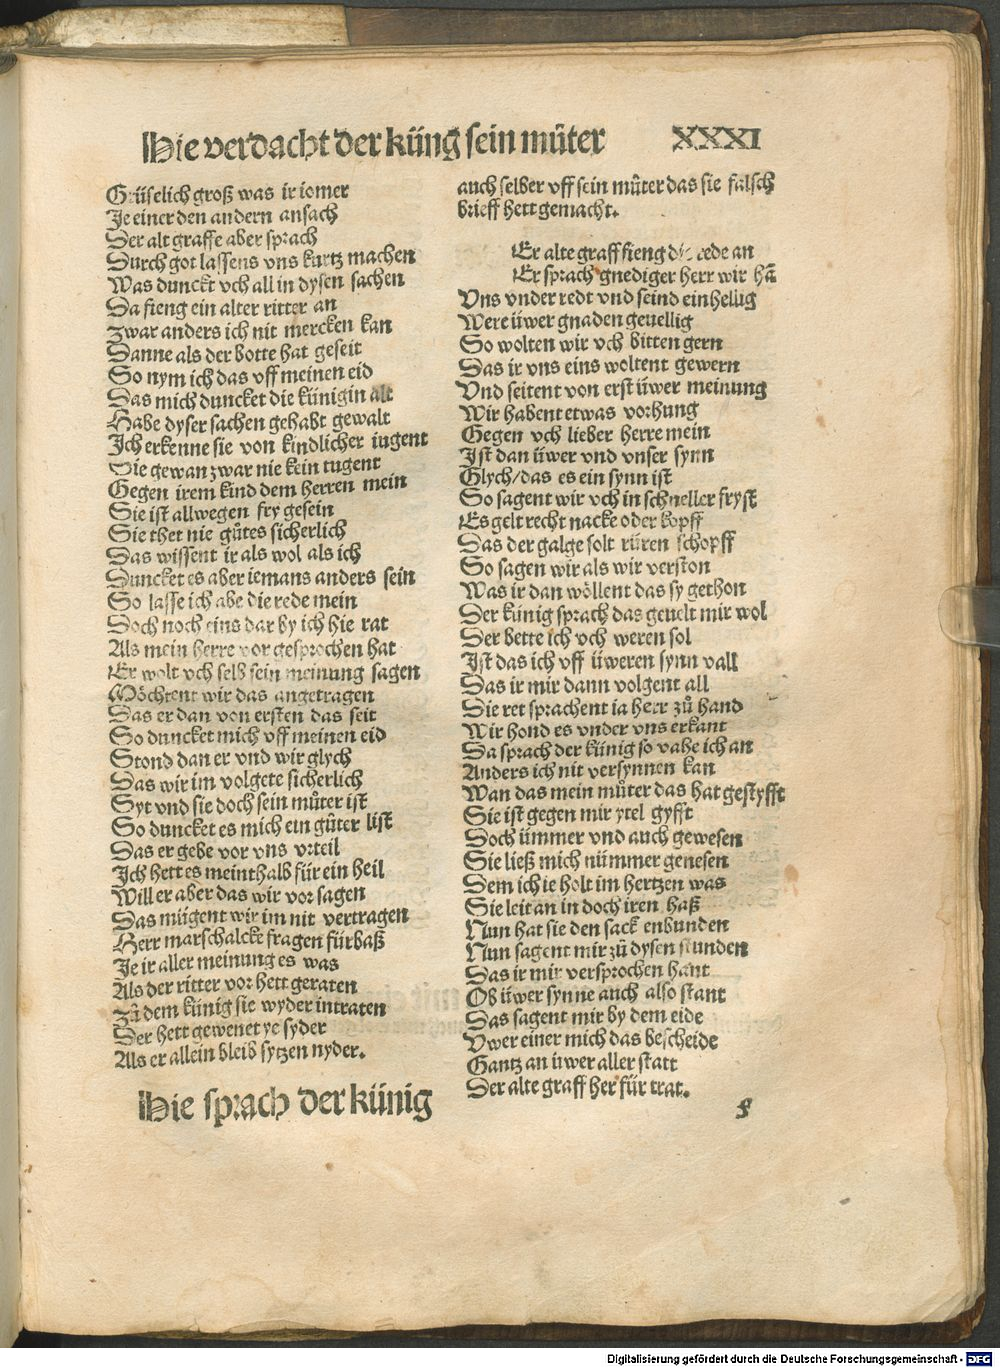 Hie verdacht der küng sein můter XXXI
Grüselich groß was ir iomer
Je einer den andern ansach
Der alt graffe aber sprach
Durch got lassens vns kurtz machen
Was dunckt vch all in dysen sachen
Da fieng ein alter ritter an
Zwar anders ich nit mercken kan
Danne als der botte hat geseit
So nym ich das vff meinen eid
Das mich duncket die künigin alt
Habe dyser sachen gehabt gewalt
Ich erkenne sie von kindlicher iugent
Sie gewan zwar nie kein tugent
Gegen irem kind dem herren mein
Sie ist allwegen fry gesein
Sie thet nie gůtes sicherlich
Das wissent ir als wol als ich
Duncket es aber iemans anders sein
So lasse ich abe die rede mein
Doch noch eins dar by ich hie rat
Als mein herre vor gesprochen hat
Er wolt vch selb sein meinung sagen
Möchtent wir das angetragen
Das er dan von ersten das seit
So duncket mich vff meinen eid
Stond dan er vnd wir glych
Das wir im volgete sicherlich
Syt vnd sie doch sein můter ist
So duncket es mich ein gůter list
Das er gebe vor vns vrteil
Ich hett es meinthalb für ein heil
Will er aber das wir vor sagen
Das mügent wir im nit vertragen
Herr marschalcke fragen fürbaß
Je ir aller meinung es was
Als der ritter vor hett geraten
Zů dem künig sie wyder intraten
Der hett gewenet ye syder
Als er allein bleib sytzen nyder.
Hie sprach der künig
auch selber vff sein můter das sie falsch
brieff hett gemacht.
Er alte graff fieng die rede an
Er sprach gnediger herr wir hā
Vns vnder redt vnd seind einhellig
Were üwer gnaden geuellig
So wolten wir vch bitten gern
Das ir vns eins woltent gewern
Vnd seitent von erst üwer meinung
Wir habent etwas vorhung
Gegen vch lieber herre mein
Ist dan üwer vnd vnser synn
Glych/das es ein synn ist
So sagent wir vch in schneller fryst
Es gelt recht nacke oder kopff
Das der galge solt rüren schopff
So sagen wir als wir verston
Was ir dan wöllent das sy gethon
Der künig sprach das geuelt mir wol
Der bette ich vch weren sol
Ist das ich vff üweren synn vall
Das ir mir dann volgent all
Die ret sprachent ia herr zů hand
Wir hond es vnder vns erkant
Da sprach der künig so vahe ich an
Anders ich nit versynnen kan
Wan das mein můter das hat gestyfft
Sie ist gegen mir ytel gyfft
Doch ümmer vnd auch gewesen
Sie ließ mich nümmer genesen
Dem ich ie holt im hertzen was
Sie leit an in doch iren haß
Nun hat sie den sack enbunden
Nun sagent mir zů dysen stunden
Das ir mir versprochen hant
Ob üwer synne auch also stant
Das sagent mir by dem eide
Vwer einer mich das bescheide
Gantz an üwer aller statt
Der alte graff her für trat.
f
Digitalisierung gefördert durch die Deutsche Forschungsgemeinschaft - DFG